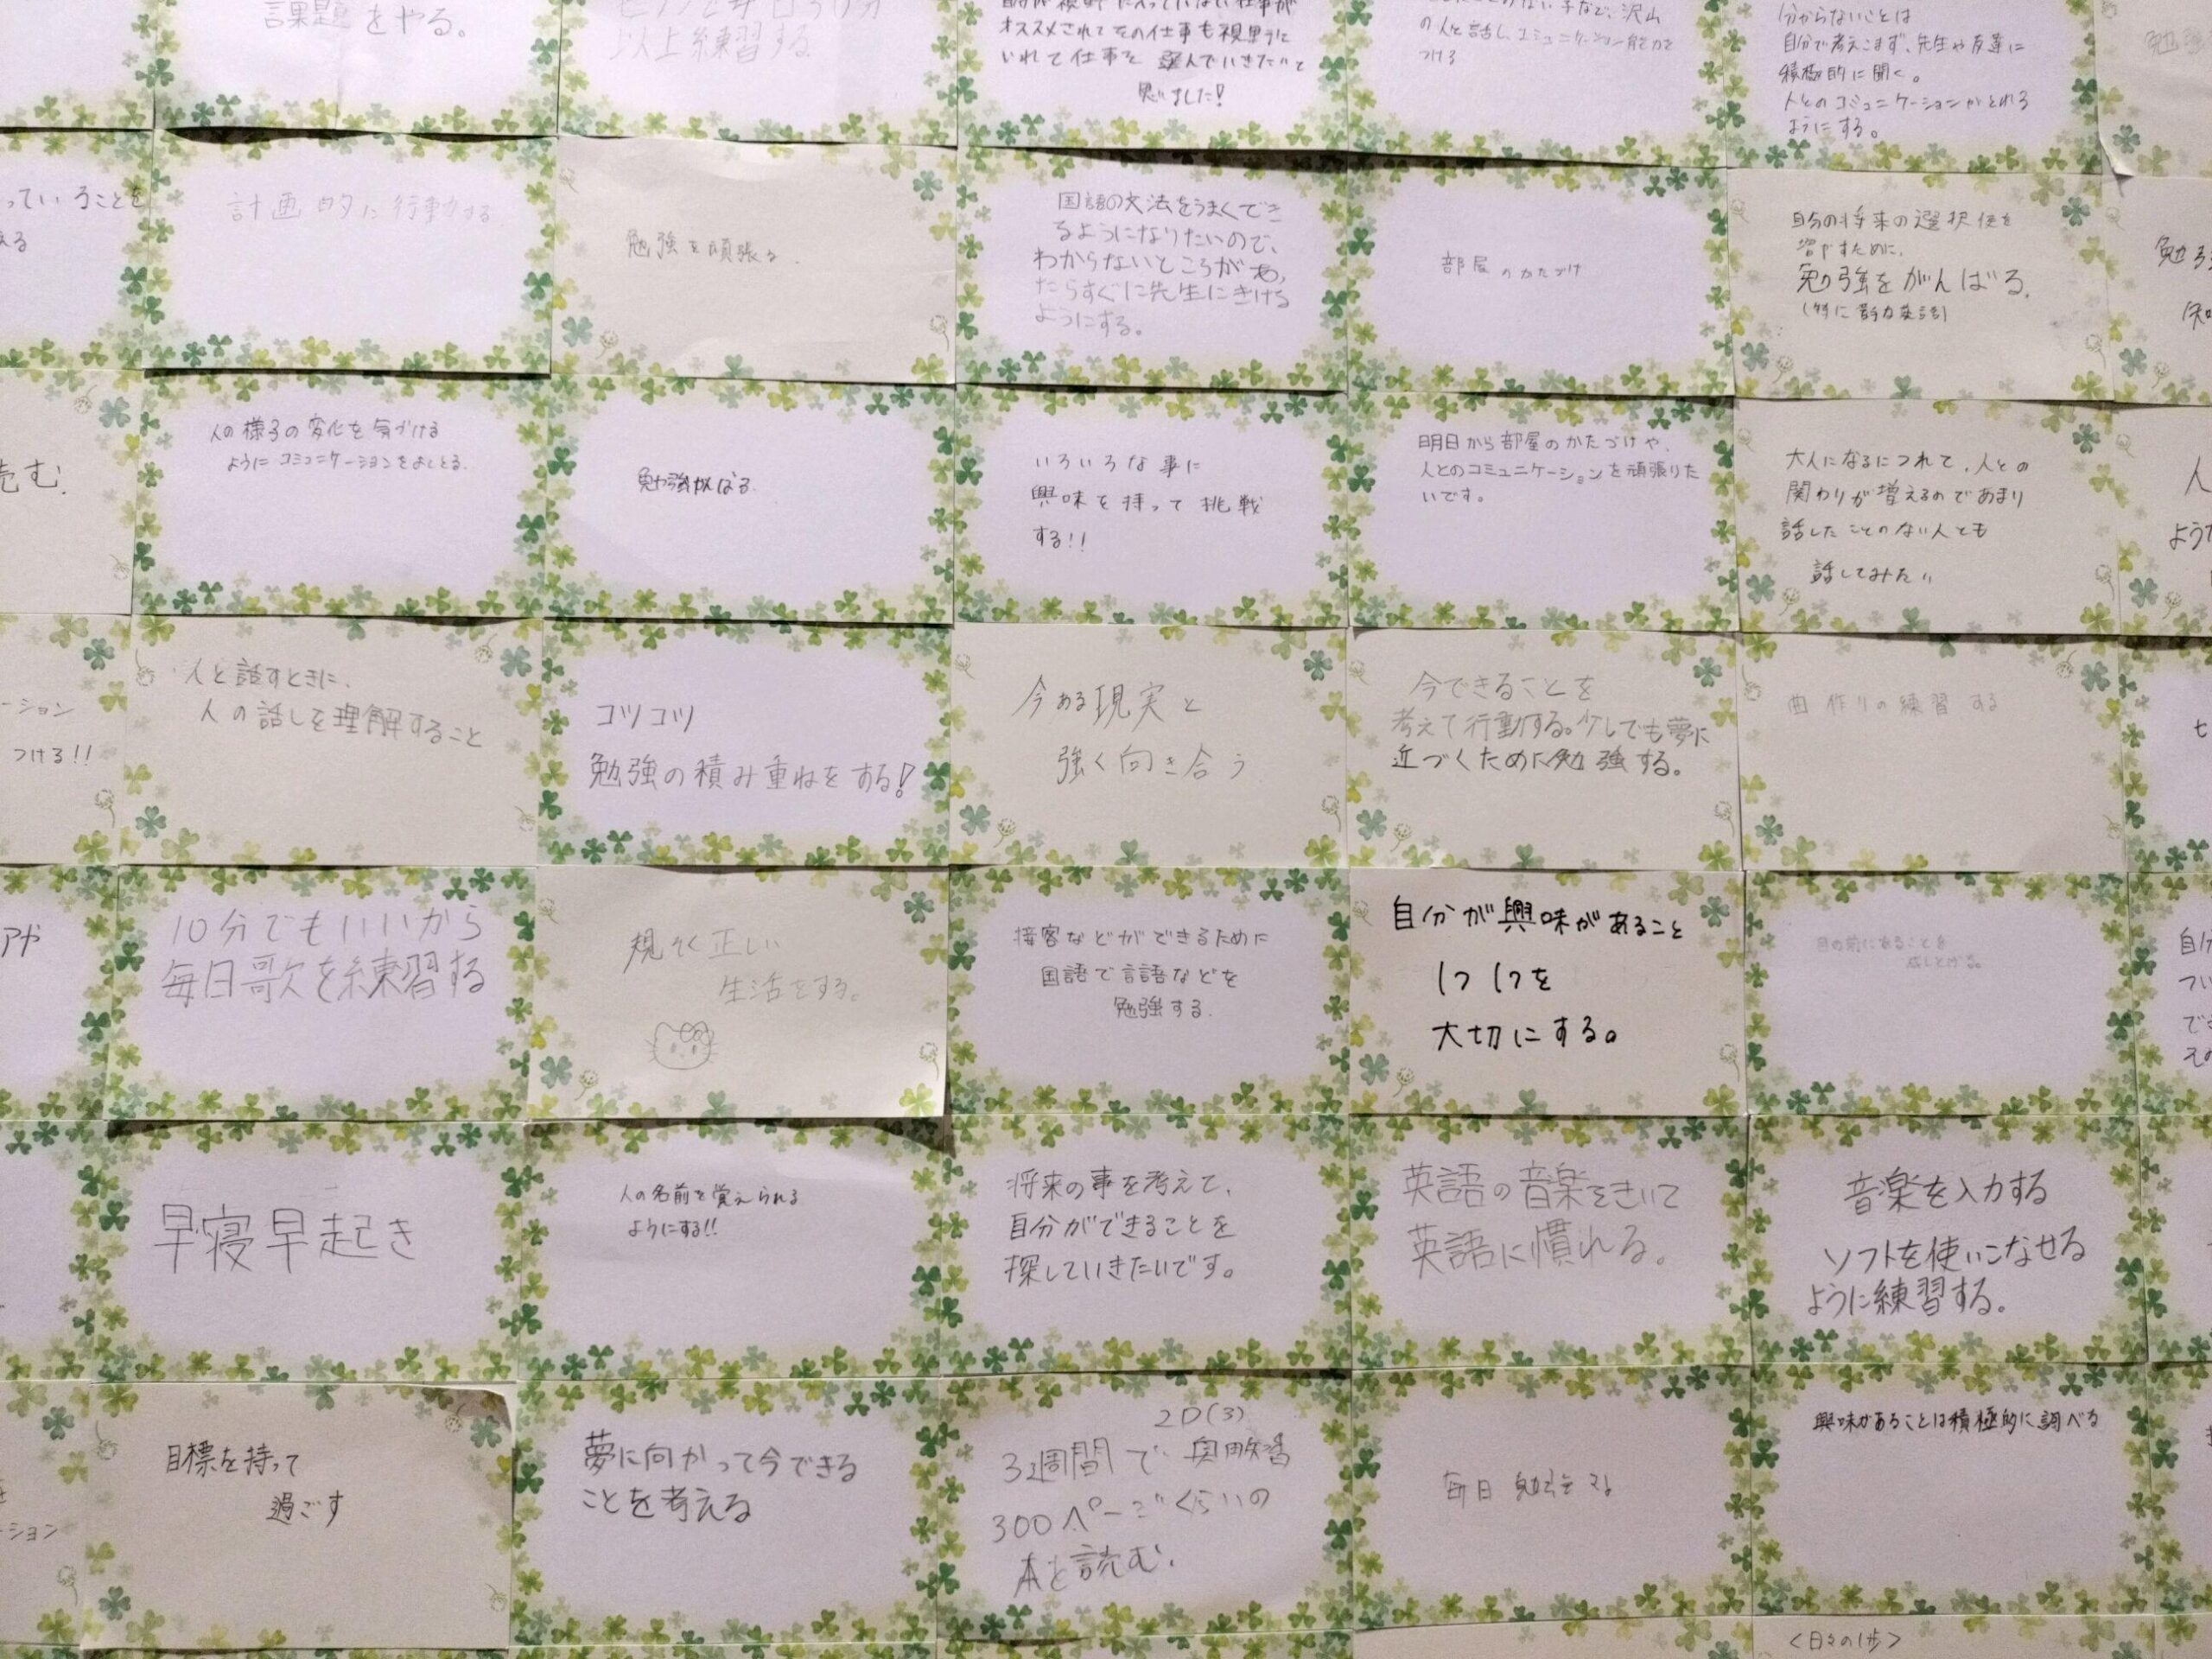 課題をやる。
以上練習する
オススメされてその仕事も視野に
いれて仕事を選んでいきたいと
思いました!
の人と話し、コミュニケーション能力を
つける
分からないことは
自分で考えこまず、先生や友達に
積極的に聞く。
人とのコミュニケーションがとれる
ようにする。
っていることを
計画的に行動する
勉強を頑張る.
国語の文法をうまくでき
るようになりたいので、
わからないところがあっ
たらすぐに先生にきける
ようにする。
部屋のかたづけ
自分の将来の選択肢を
増やすために、
勉強をがんばる.
(特に苦手な英語)
売む.
人の様子の変化を気づける
ようにコミュニケーションをよくとる.
勉強がんばる.
いろいろな事に
興味を持って挑戦
する!!
明日から部屋のかたづけや、
人とのコミュニケーションを頑張りた
いです。
大人になるにつれて、人との
関わりが増えるのであまり
話したことのない人とも
話してみたい
ーション
つける!!
人と話すときに、
人の話しを理解すること
コツコツ
勉強の積み重ねをする!
今ある現実と
強く向き合う
今できることを
考えて行動する。少しでも夢に
近づくために勉強する。
曲作りの練習する
10分でもいいから
毎日歌を練習する
規そく正しい
生活をする。
接客などができるために
国語で言語などを
勉強する.
自分が興味があること
1つ1つを
大切にする。
目の前にあることを
早寝早起き
人の名前を覚えられる
ようにする!!
将来の事を考えて、
自分ができることを
探していきたいです。
英語の音楽をきいて
英語に慣れる。
音楽を入力する
ソフトを使いこなせる
ように練習する。
ーション
目標を持って
過ごす
夢に向かって今できる
ことを考える
2D(3)
3週間で
300ページくらいの
本を読む.
毎日勉強する
興味があることは積極的に調べる
<日々の1歩>